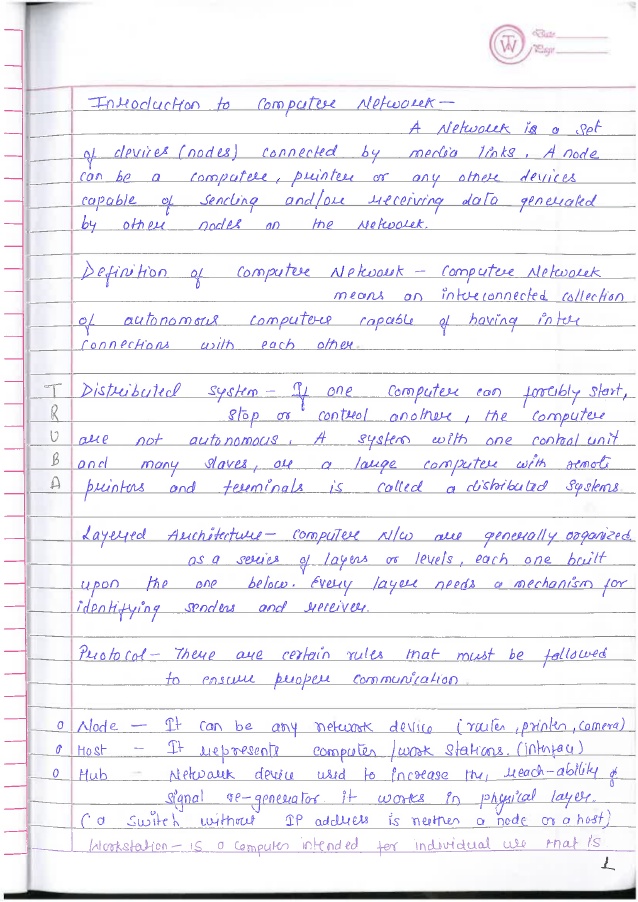 TW
Date
Page
Introduction to Computer Network –
A Network is a set
of devices (nodes) connected by media links. A node
can be a computer, printer or any other devices
capable of sending and/or receiving data generated
by other nodes on the Network.
Definition of Computer Network – Computer Network
means an interconnected collection
of autonomous computers capable of having inter
connections with each other.
Distributed System – If one Computer can forcibly start,
stop or control another, the computer
are not autonomous. A system with one control unit
and many slaves, or a large computer with remote
printers and terminals is called a distributed systems
TRUBA
Layered Architecture – Computer N/w are generally organized
as a series of layers or levels, each one built
upon the one below. Every layer needs a mechanism for
identifying senders and receiver.
Protocol – There are certain rules that must be followed
to ensure proper communication
o Node – It can be any network device (router, printer, camera)
o Host – It represents computer / work stations. (interface)
o Hub – Network device used to increase the, reach-ability &
signal re-generator. it works in physical layer.
(a switch without IP address is neither a node or a host)
Workstation – is a computer intended for individual use that is
1